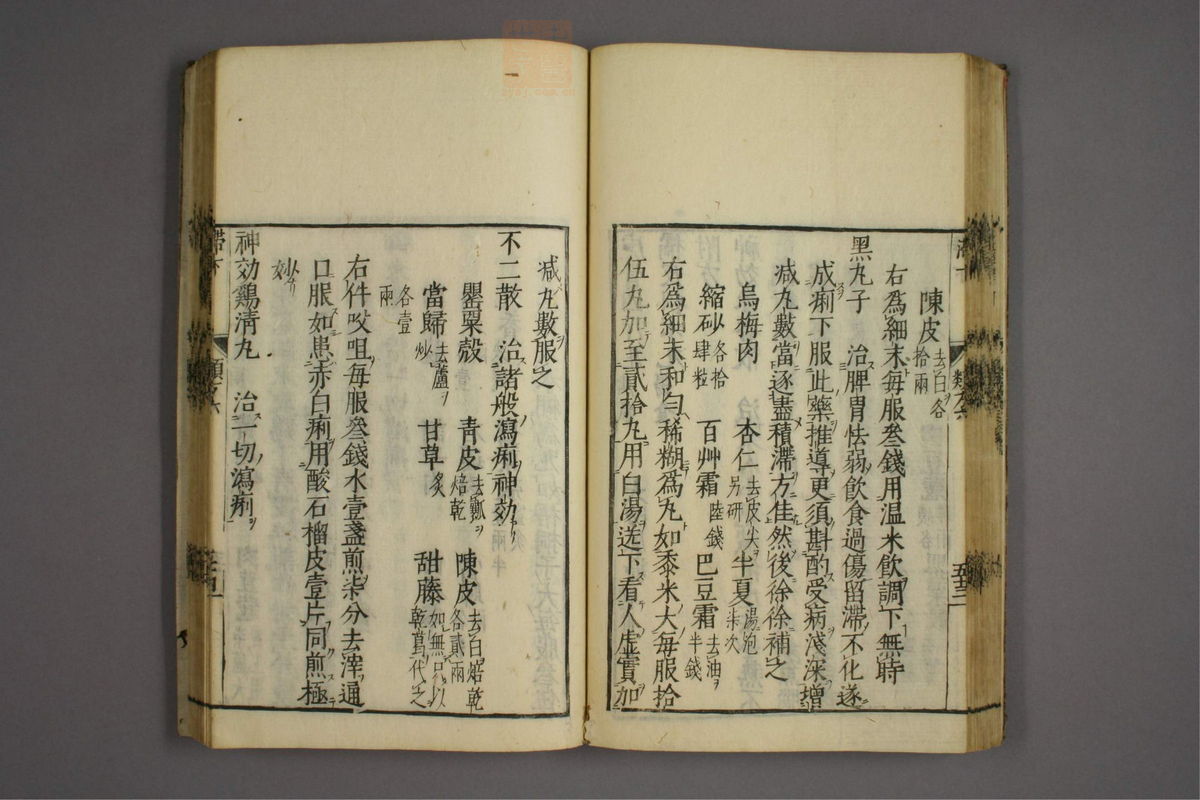 陳皮去白各拾兩
右爲細末每服叄錢用温米飲調下無時
黑丸子 治脾胃怯弱飲食過傷留滯不化遂
成痢下服此藥推導更須斟酌受病淺深增
减丸數當逐盡積滯方佳然後徐徐補之
烏梅肉 杏仁去皮尖另研 半夏湯泡柒次
縮砂各拾肆粒 百艸霜陸錢 巴豆霜去油半錢
右爲細末和勻稀糊爲丸如黍米大每服拾
伍丸加至貳拾丸用白湯送下看人虛實加
减丸數服之
不二散 治諸般瀉痢神効
罌粟殻 青皮去瓤焙乾 陳皮去白焙乾各貳兩
當歸去蘆炒 甘草炙 甜藤如無只以乾葛代之
各壹兩
右件㕮咀每服叄錢水壹盞煎柒分去滓通
口服如患赤白痢用酸石榴皮壹片同煎極
妙
神効鷄清丸 治一切瀉痢